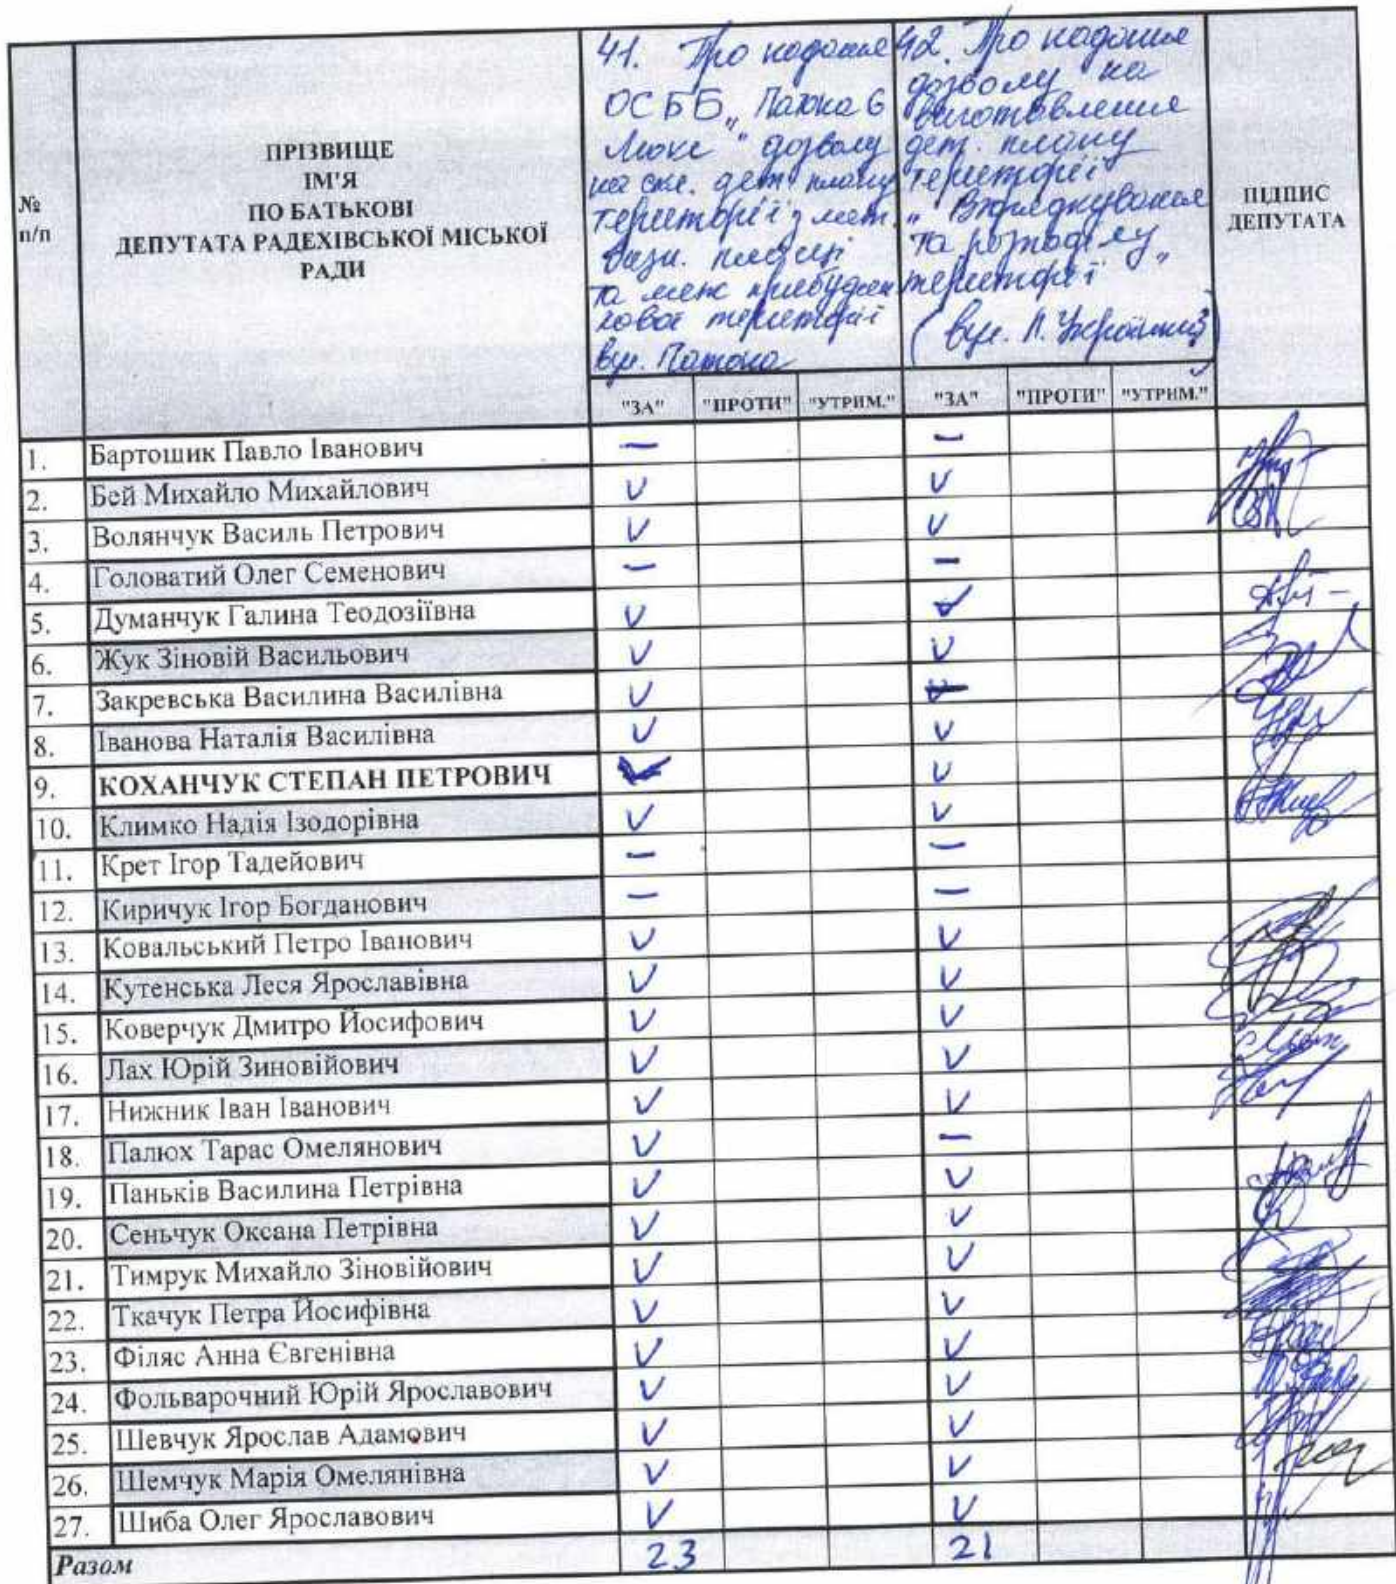 №
п/п
ПРІЗВИЩЕ
ІМ'Я
ПО БАТЬКОВІ
ДЕПУТАТА РАДЕХІВСЬКОЇ МІСЬКОЇ
РАДИ
41. Про надання
ОСББ „ 6
Люкс" дозволу
на дет. плану
території з мет.
площі
та меж прибудин
кової території
вул.
42. Про надання
дозволу на
виготовлення
дет. плану
території
„ Впорядкування
та розподілу „
території
( вул. Л. Українки)
ПІДПИС
ДЕПУТАТА
"ЗА" "ПРОТИ" "УТРИМ." "ЗА" "ПРОТИ" "УТРИМ."
1. Бартошик Павло Іванович — —
2. Бей Михайло Михайлович V V
3. Волянчук Василь Петрович V V
4. Головатий Олег Семенович — —
5. Думанчук Галина Теодозіївна V V
6. Жук Зіновій Васильович V V
7. Закревська Василина Василівна V
8. Іванова Наталія Василівна V V
9. КОХАНЧУК СТЕПАН ПЕТРОВИЧ V V
10. Климко Надія Ізодорівна V V
11. Крет Ігор Тадейович — —
12. Киричук Ігор Богданович — —
13. Ковальський Петро Іванович V V
14. Кутенська Леся Ярославівна V V
15. Коверчук Дмитро Йосифович V V
16. Лах Юрій Зиновійович V V
17. Нижник Іван Іванович V V
18. Палюх Тарас Омелянович V —
19. Паньків Василина Петрівна V V
20. Сеньчук Оксана Петрівна V V
21. Тимрук Михайло Зіновійович V V
22. Ткачук Петра Йосифівна V V
23. Філяс Анна Євгенівна V V
24. Фольварочний Юрій Ярославович V V
25. Шевчук Ярослав Адамович V V
26. Шемчук Марія Омелянівна V V
27. Шиба Олег Ярославович V V
Разом 23 21